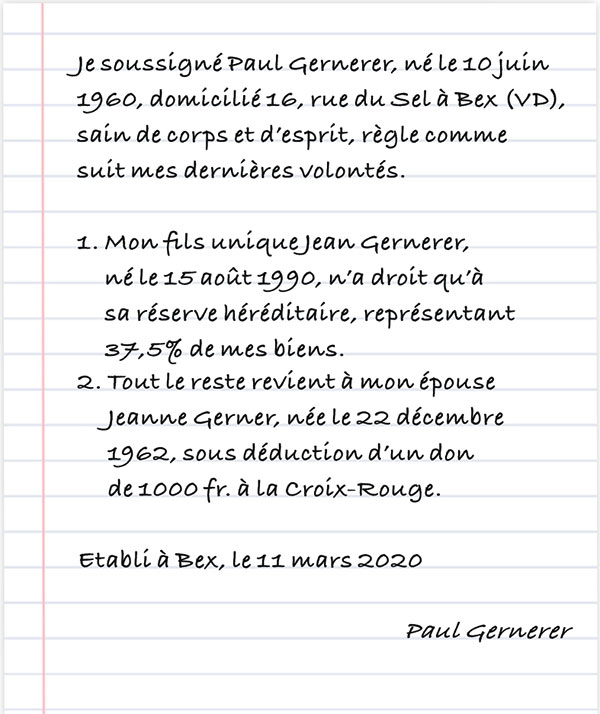 Je soussigné Paul Gernerer, né le 10 juin
1960, domicilié 16, rue du Sel à Bex (VD),
sain de corps et d'esprit, règle comme
suit mes dernières volontés.
1. Mon fils unique Jean Gernerer,
né le 15 août 1990, n'a droit qu'à
sa réserve héréditaire, représentant
37,5% de mes biens.
2. Tout le reste revient à mon épouse
Jeanne Gerner, née le 22 décembre
1962, sous déduction d'un don
de 1000 fr. à la Croix-Rouge.
Etabli à Bex, le 11 mars 2020
Paul Gernerer